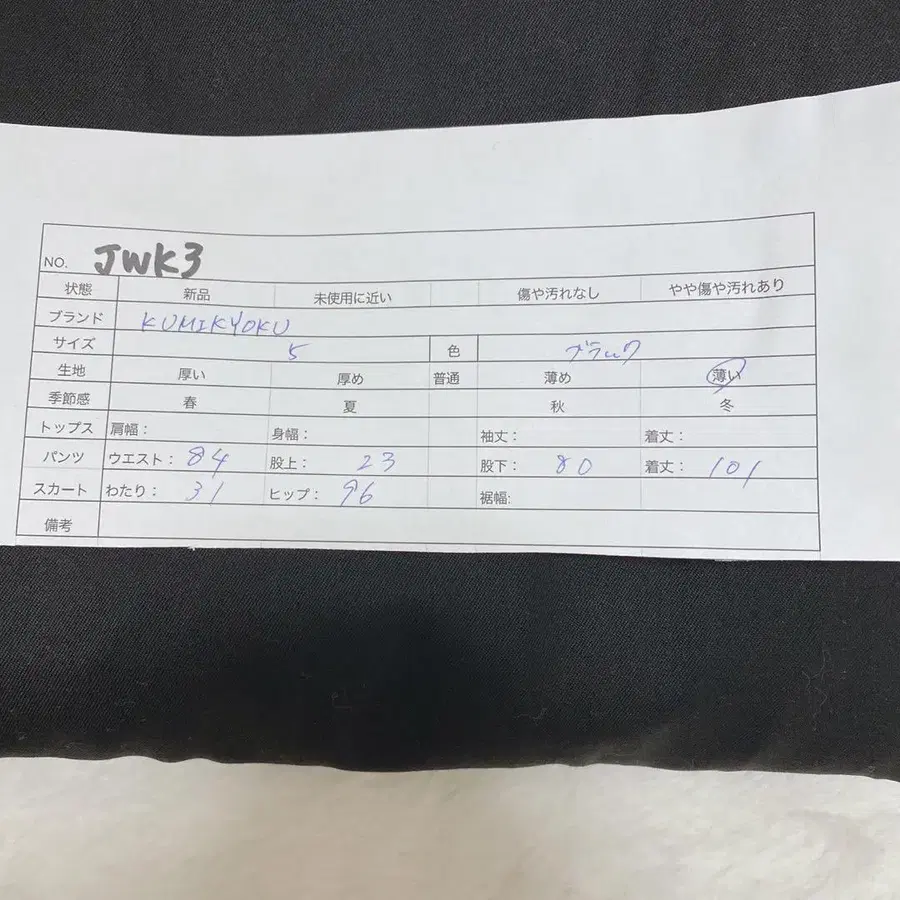 NO. JWK3
状態 新品 未使用に近い 傷や汚れなし やや傷や汚れあり
ブランド KUMIKYOKU
サイズ 5 色 ブラック
生地 厚い 厚め 普通 薄め 薄い
季節感 春 夏 秋 冬
トップス 肩幅： 身幅： 袖丈： 着丈：
パンツ ウエスト： 84 股上： 23 股下： 80 着丈： 101
スカート わたり： 31 ヒップ： 96 裾幅:
備考